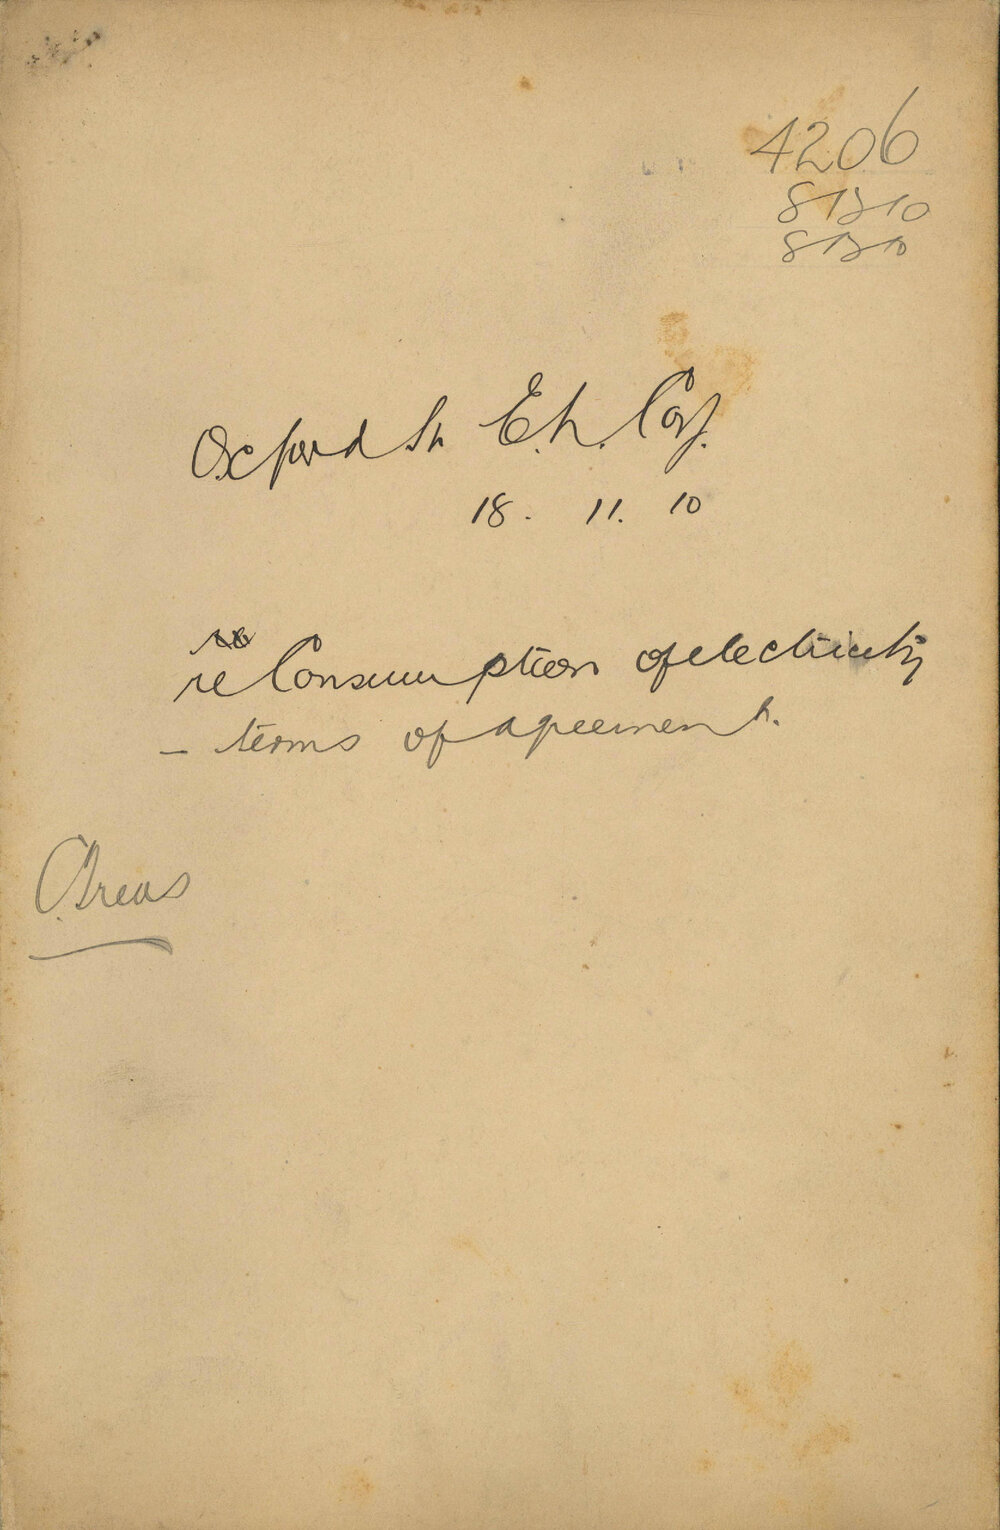 4206
Oxford St E.L. Coy.
18. 11. 10
re Consumption of electricity
– terms of agreement.